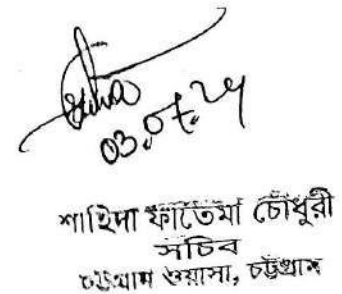 03.07.24
শাহিদা ফাতেমা চৌধুরী
সচিব
চট্টগ্রাম ওয়াসা, চট্টগ্রাম